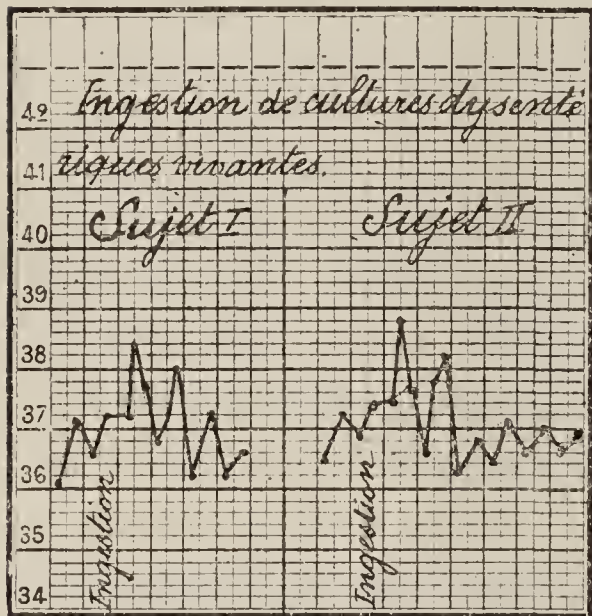 Ingestion de cultures dysenté
riques vivantes.
Sujet I
Sujet II
42
41
40
39
38
37
36
35
34
Ingestion
Ingestion